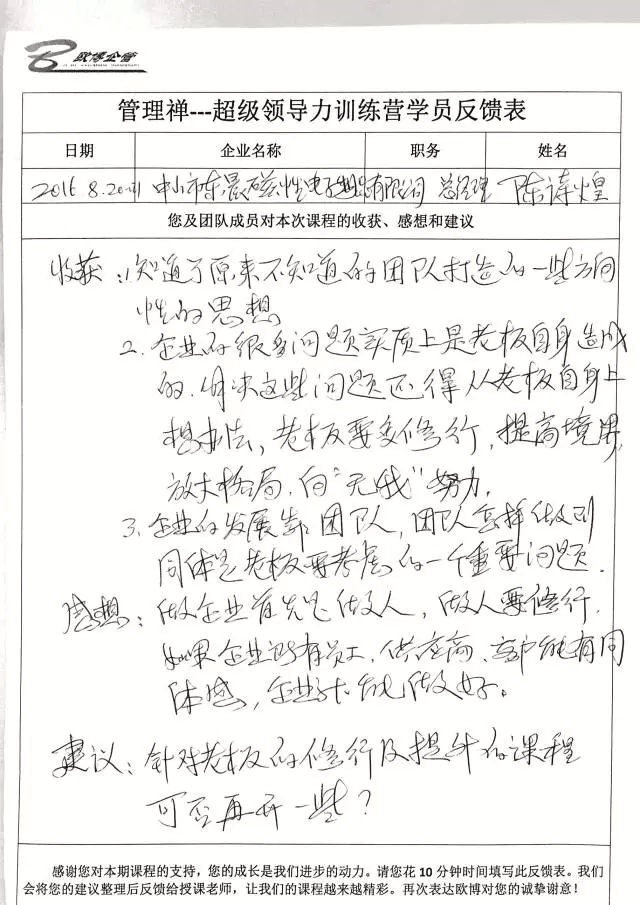 欧博企管
管理禅---超级领导力训练营学员反馈表
日期 企业名称 职务 姓名
2016 8.20-21 中山市东晨磁性电子制品有限公司 总经理 陈诗煌
您及团队成员对本次课程的收获、感想和建议
收获：知道了原来不知道的团队打造的一些方向
性的思想
2. 企业的很多问题实质上是老板自身造成
的，解决这些问题还得从老板自身上
想办法，老板要多修行，提高境界，
放大格局，向"无我"努力。
3. 企业的发展靠团队，团队怎样做到
同体是老板要考虑的一个重要问题．
感想：做企业首先是做人，做人要修行．
如果企业所有员工、供应商、客户能有同
体感，企业才能做好。
建议：针对老板的修行及提升的课程
可否再开一些？
感谢您对本期课程的支持，您的成长是我们进步的动力。请您花 10 分钟时间填写此反馈表。我们
会将您的建议整理后反馈给授课老师，让我们的课程越来越精彩。再次表达欧博对您的诚挚谢意！